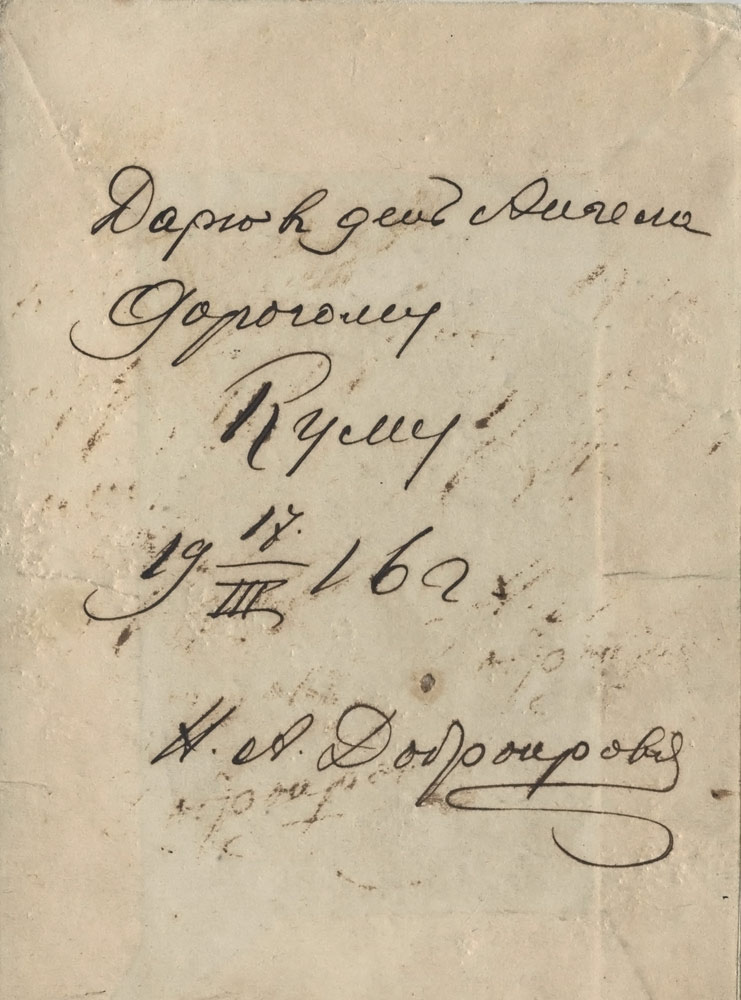 Дарю в день Ангела
Дорогому
Куму
19 17/III 16 г.
Н. А.